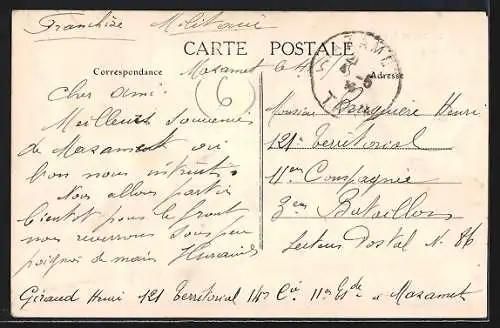 Franchise Militaire
CARTE POSTALE
Correspondance
Adresse
Mazamet le
6
Cher ami.
Meilleurs souvenirs
de Mazamet où
bon nous
Nous allons partir
bientôt pour le front
nous reverrons sous peu
poignée de mains
Monsieur Henri
121e Territorial
11em Compagnie
3em Bataillon
Secteur Postal N. 86
Géraud Henri 121 Territorial 14e Cie 11e à Mazamet